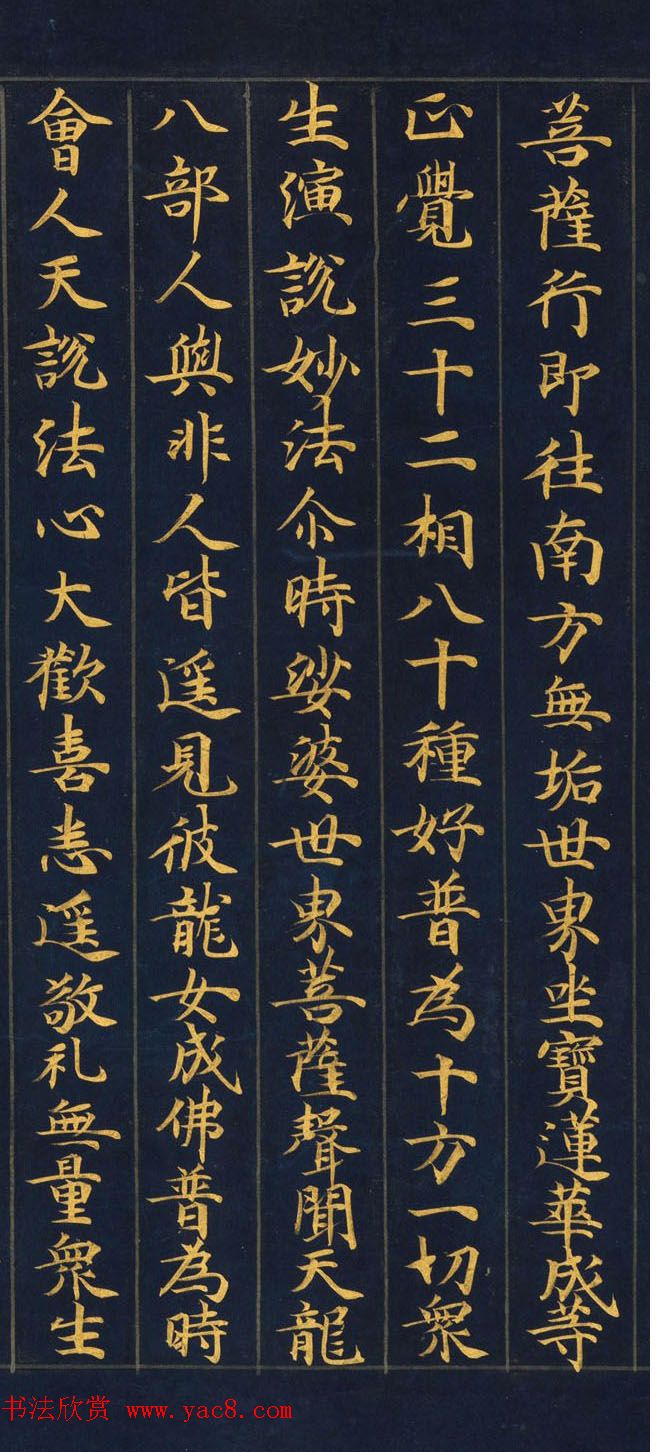 菩薩行即往南方無垢世界坐寶蓮華成等
正覺三十二相八十種好普為十方一切衆
生演說妙法尒時娑婆世界菩薩聲聞天龍
八部人與非人皆遥見彼龍女成佛普為時
會人天說法心大歡喜悉遥敬礼無量衆生
书法欣赏 www.yac8.com